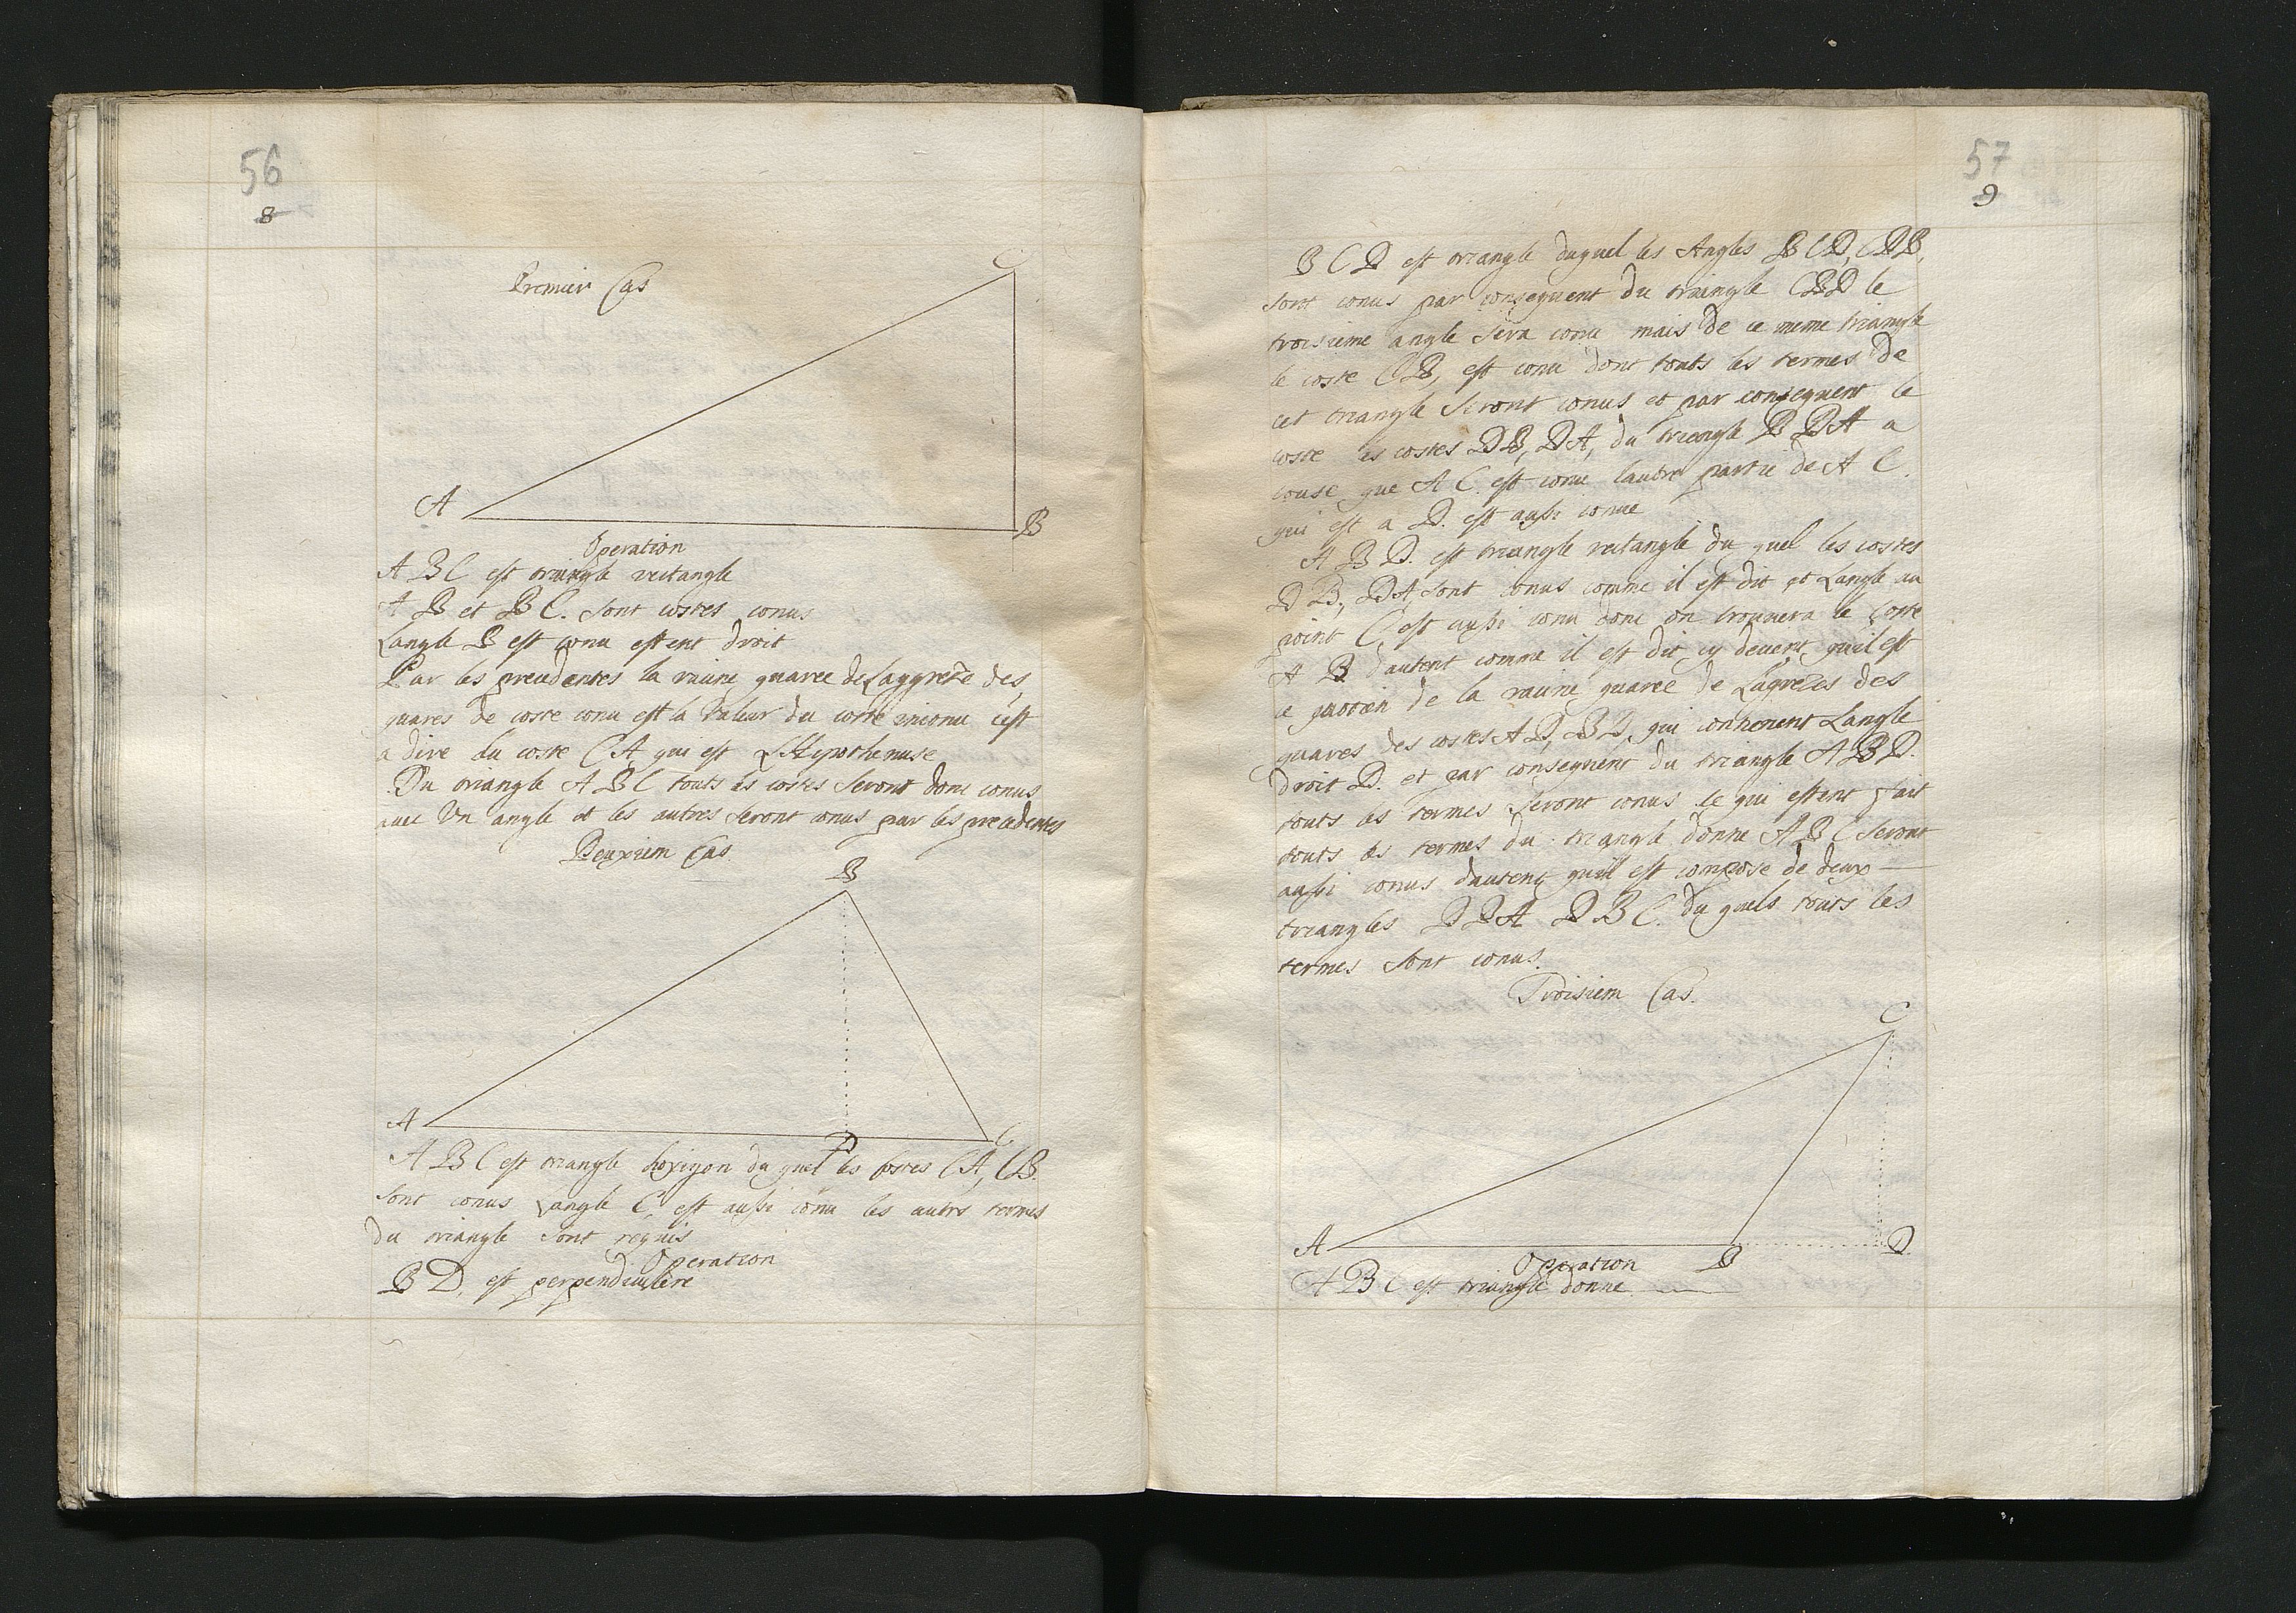 56
8
Premier Cas
C
A
B
Operation
A B C est triangle rectangle
A B et B C. sont costes conus
Langle B est conu estent droit
Par les precedentes la racine quaree de Laggrete des
quares de coste conu est la Valeur du coste inconu cest
a dire du coste C A, qui est LHypothenuse
Du triangle A B C touts les costes seront donc conus
avec Un angle et les autres seront conus par les precedentes
Deuxiem Cas
B
A
D
C
A B C est triangle hoxigon du quel les costes C A, C B.
sont conus Langle C, est aussi conu les autrs termes
du triangle sont requis
Operation
B D, est perpendiculere
57
9
B C D est triangle duquel les Angles B C D, C D B,
sont conus par consequent du triangle C B D le
troisieme angle sera conu mais de ce meme triangle
le coste C B, est conu dont touts les termes de
cet triangle seront conus et par consequent le
coste les costes D B, D A, du triangle B D A a
couse que A C. est conu lautre partie de A C.
qui est a D. est aussi conue
A B D. est triangle rectangle du quel les costes
D B, D A sont conus comme il est dit et Langle au
point C, est aussi conu donc on trouvera le Coste
A B dautent comme il est dit cy devent, quil est
le de la racine quaree de Lagretes des
quares des costes A D, B D, qui contienent Langle
droit D. et par consequent du triangle A B D.
touts les termes seront conus ce qui estent fait
touts les termes du triangle donne A B C seront
aussi conus dautent quil est compose de deux
triangles D A D B C. du quels touts les
termes sont conus.
Troisiem Cas.
C
A
B
D
Operation
A B C est triangle donne